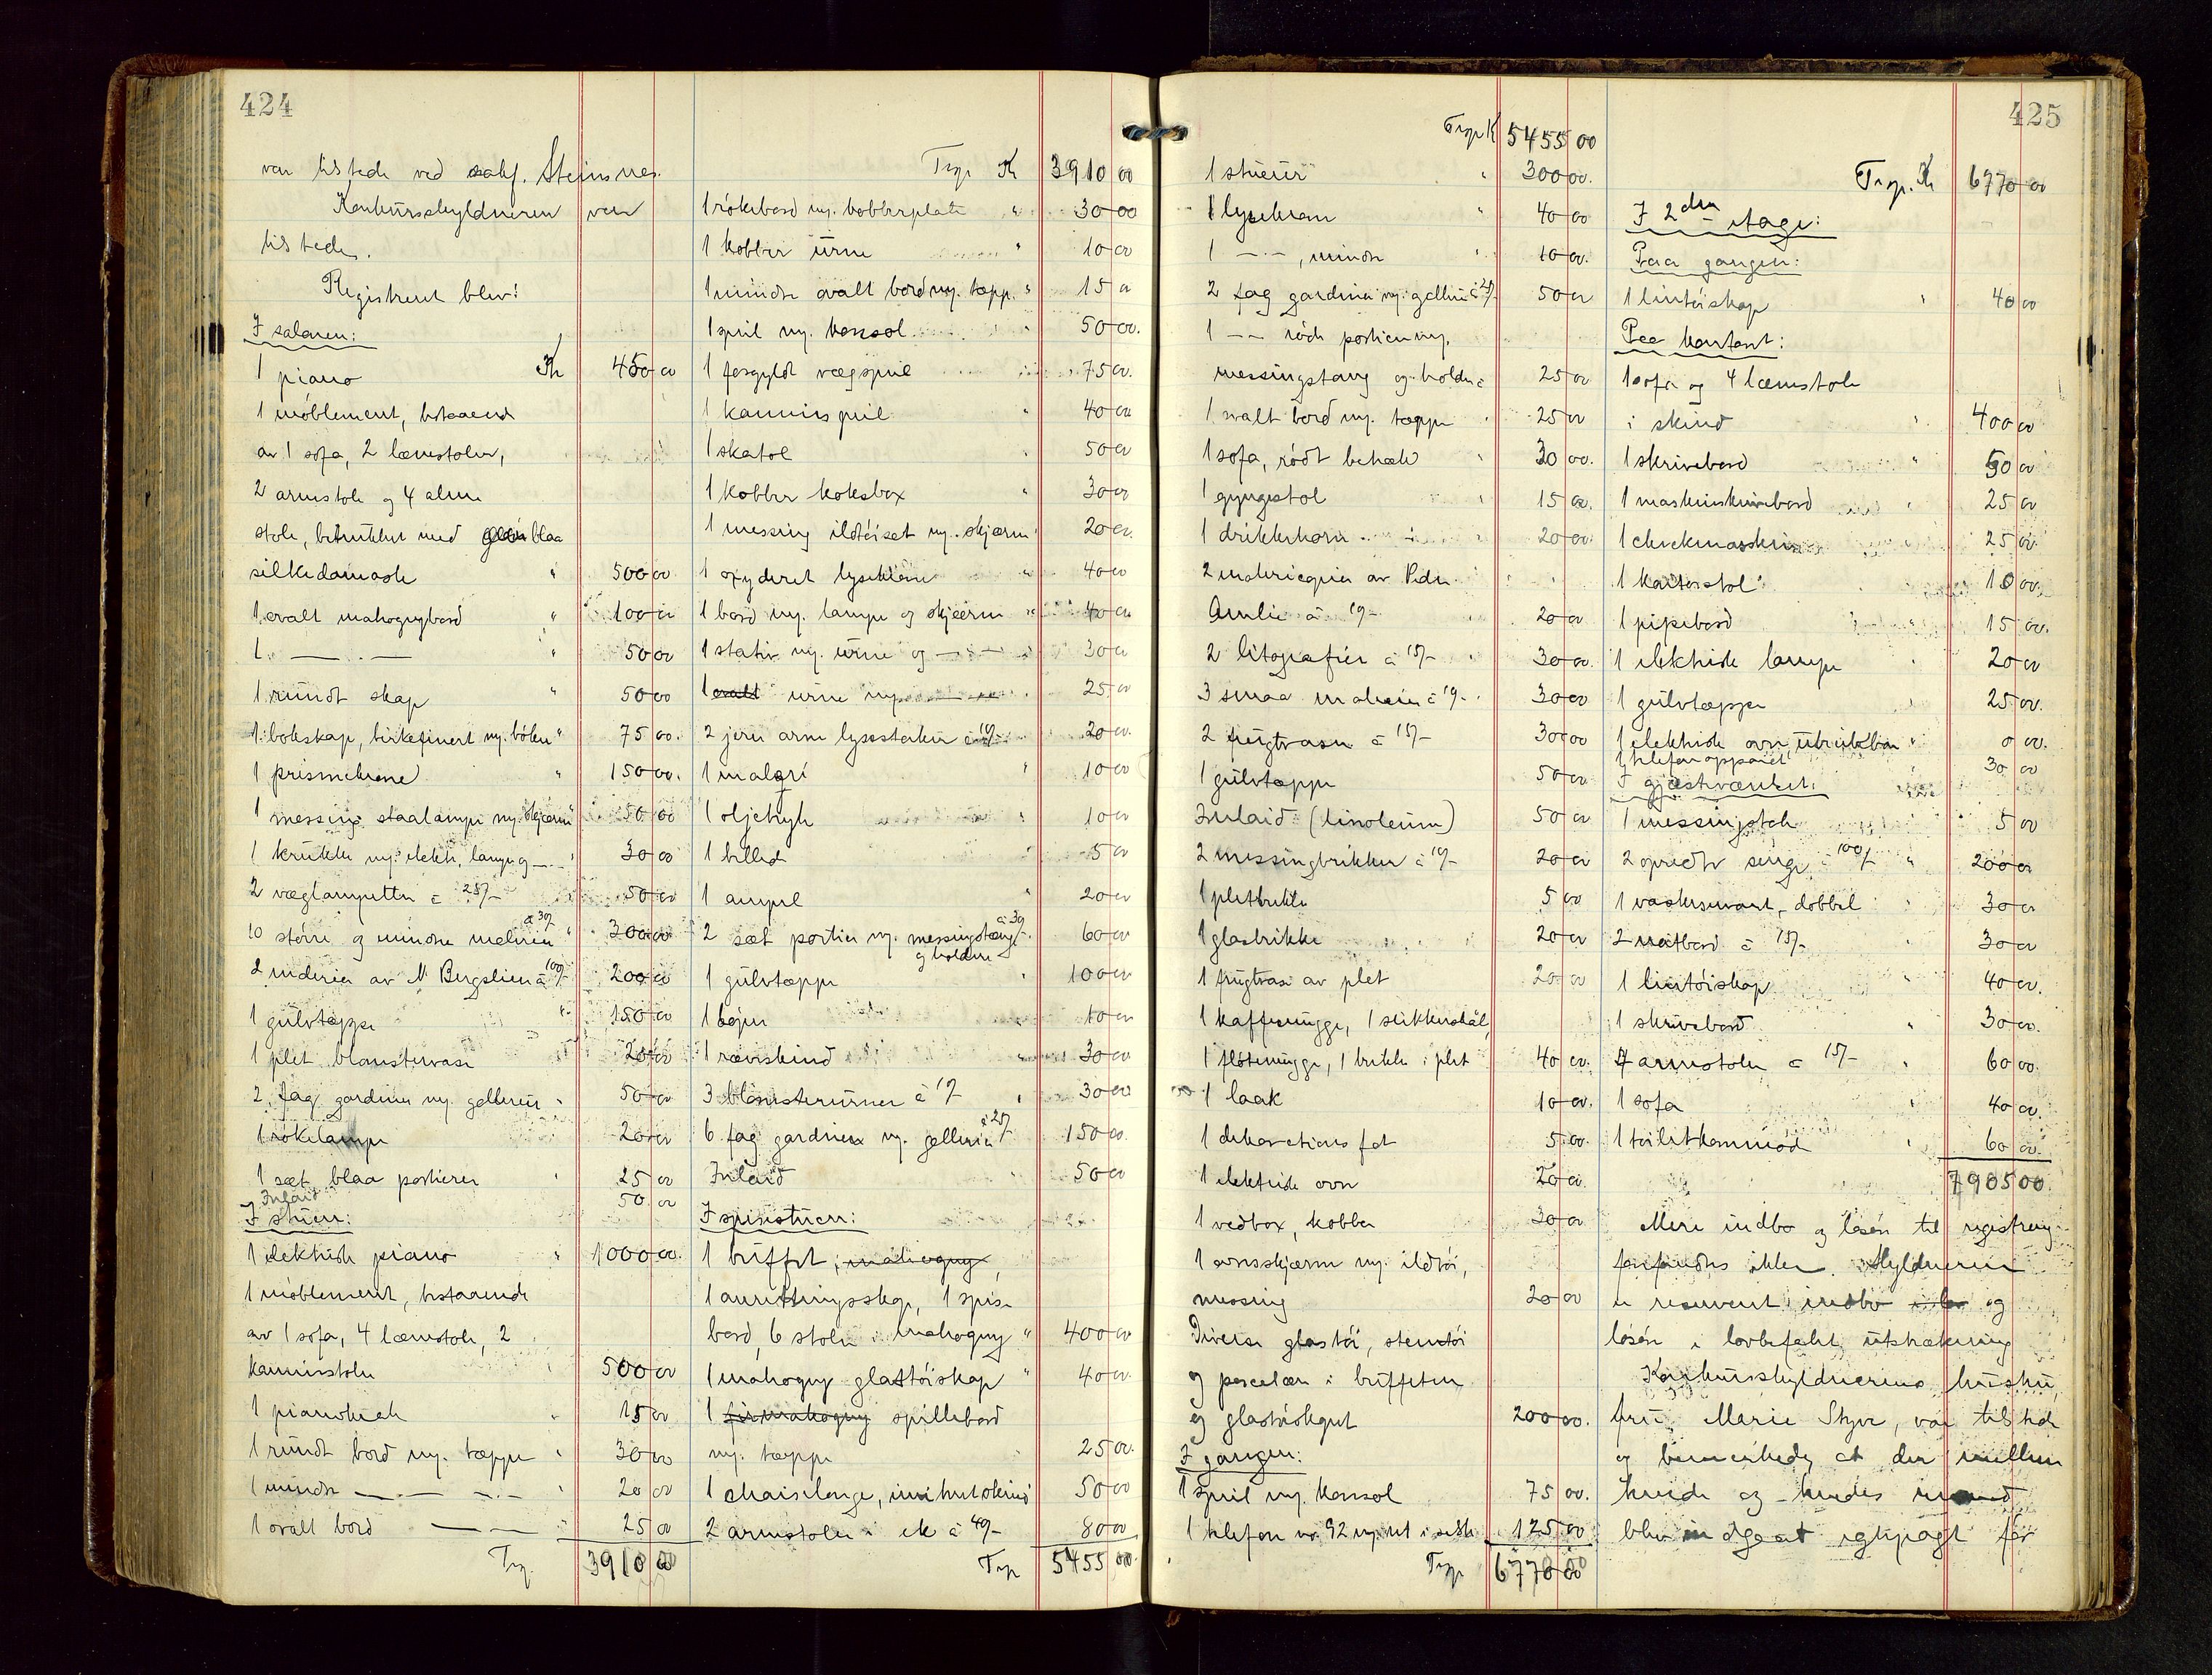 424
var tilstede ved sakf. Steinsnes.
Konkursskyldneren var
tilstede.
Registrert blev:
I salonen:
1 piano Kr 450 00
1 möblement, bestaaende
av 1 sofa, 2 lænestoler,
2 armstole og 4 alm.
stole, betrukket med blaa
silkedamask " 500 00
1 ovalt mahognybord " 100 00
1 — . — " 50 00
1 rundt skap " 50 00
1 bokskap, birkefinert m. böker " 75 00
1 prismekrone " 150 00
1 messing staalampe m. skjærm " 50 00
1 krukke m. elektr. lampe og — . — " 30 00
2 væglampetter á 25/- 50 00
10 större og mindre malerier á 30/- " 300 00
2 malerier av N. Bergslien á 100/- 200 00
1 gulvteppe " 150 00
1 plet blomstervase " 20 00
2 fag gardiner m. galleri " 50 00
1 rökelampe 20 00
1 sæt blaa portierer " 25 00
Inlaid 50 00
I stuen:
1 elektrisk piano " 1000 00
1 möblement, bestaaende
av 1 sofa, 4 lænestole, 2
kaminstoler " 500 00
1 pianokrak " 15 00
1 rundt bord m. tæppe " 30 00
1 mindre — . — — . — " 20 00
1 ovalt bord — — — " 25 00
Trp. 3910 00
Trp. Kr 3910 00
1 rökebord m. kobberplate " 30 00
1 kobber urne " 10 00
1 mindre ovalt bord m. tæpp. " 15 00
1 speil m. konsol " 50 00
1 forgyldt vægspeil " 75 00
1 kaminspeil " 40 00
1 skatol " 50 00
1 kobber koksbox " 30 00
1 messing ildtöisæt m. skjærm " 20 00
1 oxyderet lysekrone " 40 00
1 bord m. lampe og skjærm " 40 00
1 stativ m. urne og — . — " 30 00
1 ovalt urne m. — — 25 00
2 jern arm lysestaker á 10/- 20 00
1 maleri " 10 00
1 oljetryk " 10 00
1 billed " 5 00
1 ampel " 20 00
2 sæt portier m. messingstang á 30/-
og holdere 60 00
1 gulvtæppe " 100 00
1 10 00
1 ræveskind " 30 00
3 blomsterurner á 10/- " 30 00
6 fag gardiner m. gallerie á 25/- 150 00
Inlaid " 50 00
I spisestuen:
1 buffet, mahogny,
1 anretningsskap, 1 spise
bord, 6 stoler i mahogny " 400 00
1 mahogny glastöiskap " 40 00
1 spillebord
m. tæppe " 25 00
1 chaiselonge, imitert skind 50 00
2 armstoler i ek á 40/- 80 00
Trp 5455 00
425
Trp Kr 5455 00
1 stueur " 300 00
1 lysekrone " 40 00
1 — . — , mindre " 10 00
2 fag gardiner m. galleri á 25/- 50 00
1 — — röde portier m.
messingstang og holdere 25 00
1 ovalt bord m. tæppe " 25 00
1 sofa, rödt betræk " 30 00
1 gyngestol " 15 00
1 drikkehorn " 20 00
2 malerier av Peder
Aulie á 10/- 20 00
2 litografier á 15/- " 30 00
3 smaa malerier á 10/- 30 00
2 frugtvaser á 15/- 30 00
1 gulvtæppe 50 00
Inlaid (linoleum) 50 00
2 messingbrikker á 10/- 20 00
1 pletbrikke 5 00
1 glasbrikke 20 00
1 frugtvase av plet 20 00
1 kaffemugge, 1 sukkerskål
1 flötemugge, 1 brikke i plet 40 00
1 laak 10 00
1 dekorations fat 5 00
1 elektrisk ovn 20 00
1 vedbox, kobber 30 00
1 ovnsskjærm m. ildtöi,
messing 20 00
Diverse glastöi, stentöi
og porcelæn i buffeten
og glastöiskapet 200 00
I gangen:
1 speil m. konsol 75 00
1 telefon nr. 92 m. ret i selsk. 125 00
Trp 6770 00
Trp. Kr 6770 00
I 2den etage:
Paa gangen:
1 lintöiskap " 40 00
Paa kontoret:
1 sofa og 4 lænestole
i skind " 400 00
1 skrivebord " 50 00
1 maskinskrivebord 25 00
1 chekmaskin " 25 00
1 kontorstol 10 00
1 pipebord 15 00
1 elektrisk lampe " 20 00
1 gulvtæppe 25 00
1 elektrisk ovn ubrukbar " 0 00
1 telefonapparat 30 00
I gjæsteværelset:
1 messingstak 5 00
2 opredte senge á 100/- " 200 00
1 vaskeservant, dobbel " 30 00
2 natbord á 15/- " 30 00
1 lintöiskap " 40 00
1 skrivebord " 30 00
4 armstoler á 15/- " 60 00
1 sofa " 40 00
1 toiletkommod " 60 00
7905 00
Mere indbo og lösöre til registrering
forfindes ikke. Skyldneren
er reservert indbo og
lösöre i lovbefalet utstrækning
Konkursskyldnerens hustru,
fru Marie Styve, var tilstede
og bemerkede, at der mellem
hende og hendes mand
blev indgaat egtepagt för